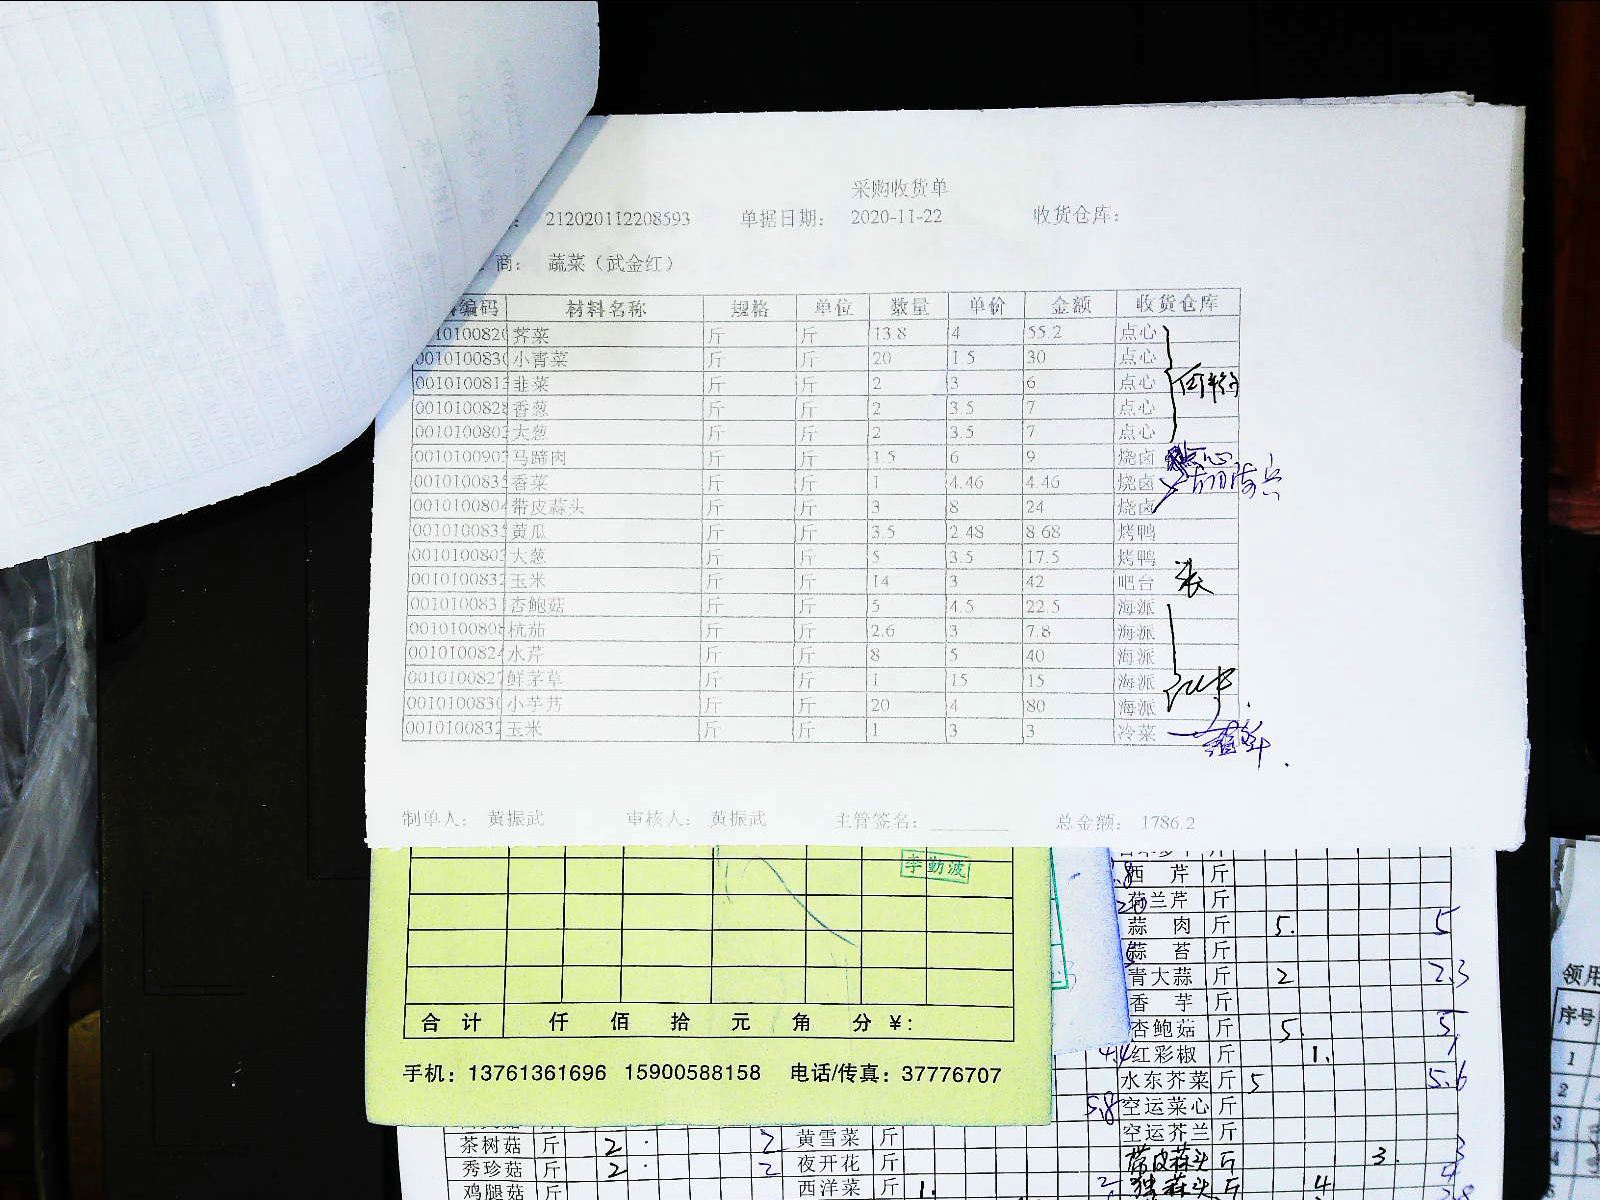 采购收货单
212020112208593 单据日期： 2020-11-22 收货仓库：
商： 蔬菜（武金红）
编码 材料名称 规格 单位 数量 单价 金额 收货仓库
荠菜 斤 斤 13.8 4 55.2 点心
小青菜 斤 斤 20 1.5 30 点心
0010100813 韭菜 斤 斤 2 3 6 点心
0010100828 香葱 斤 斤 2 3.5 7 点心
大葱 斤 斤 2 3.5 7 点心
马蹄肉 斤 斤 1.5 6 9 烧卤 点心
香菜 斤 斤 1 4.46 4.46 烧卤
0010100804 带皮蒜头 斤 斤 3 8 24 烧卤
黄瓜 斤 斤 3.5 2.48 8.68 烤鸭
大葱 斤 斤 5 3.5 17.5 烤鸭
0010100832 玉米 斤 斤 14 3 42 吧台
杏鲍菇 斤 斤 5 4.5 22.5 海派
0010100808 杭茄 斤 斤 2.6 3 7.8 海派
0010100824 水芹 斤 斤 8 5 40 海派
0010100827 鲜茅草 斤 斤 1 15 15 海派
小芋艿 斤 斤 20 4 80 海派
0010100832 玉米 斤 斤 1 3 3 冷菜
制单人： 黄振武 审核人： 黄振武 主管签名： 总金额： 1786.2
李勤波
合计 仟 佰 拾 元 角 分 ¥：
手机：13761361696 15900588158 电话/传真：37776707
西芹 斤
荷兰芹 斤
蒜肉 斤 5. 5
蒜苔 斤
青大蒜 斤 2 2.3
香芋 斤
杏鲍菇 斤 5. 5
红彩椒 斤 1.
水东芥菜 斤 5 5.6
5.8 空运菜心 斤
空运芥兰 斤
茶树菇 斤 2 2 黄雪菜 斤
带皮蒜头 斤 3. 3
秀珍菇 斤 2 2 夜开花 斤
鸡腿菇 斤 西洋菜 斤 1. 2 蒜头 斤 4
领用
序号
1
2
3
4